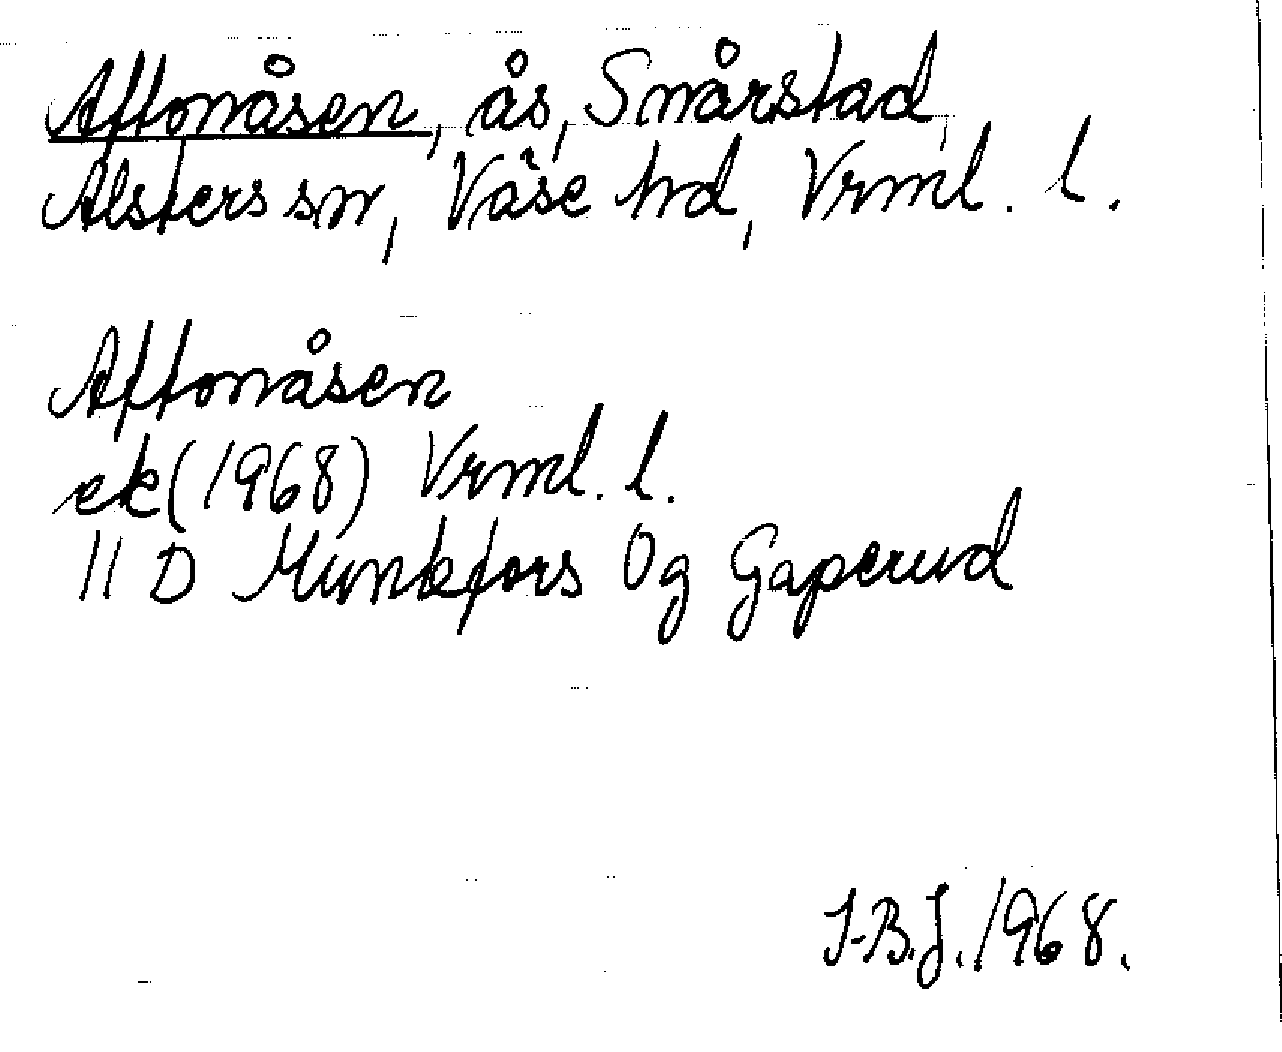 Aftonåsen, ås, Snårstad,
Alsters sn, Väse hd, Vrml. l.
Aftonåsen
ek (1968) Vrml. l.
11 D Munkfors 0g Gaperud
I-B.J. 1968.